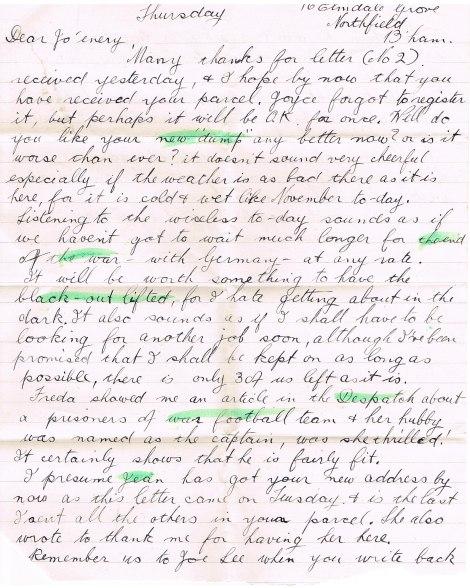 Thursday
16 Elmdale Grove
Northfield
B'ham.
Dear Jo'enery,
Many thanks for letter (No 2)
received yesterday, & I hope by now that you
have received your parcel. Joyce forgot to register
it, but perhaps it will be O.K. for once. Well do
you like your new "dump" any better now? or is it
worse than ever? it doesn't sound very cheerful
especially if the weather is as bad there as it is
here, for it is cold & wet like November to-day.
Listening to the wireless to-day sounds as if
we havent got to wait much longer for the end
of the war - with Germany - at any rate.
It will be worth something to have the
black-out lifted, for I hate getting about in the
dark. It also sounds as if I shall have to be
looking for another job soon, although I've been
promised that I shall be kept on as long as
possible, there is only 3 of us left as it is.
Freda showed me an article in the Despatch about
a prisoners of war football team & her hubby
was named as the captain, was she thrilled!
It certainly shows that he is fairly fit.
I presume Jean has got your new address by
now as this letter came on Tuesday & is the last
I sent all the others in your parcel. She also
wrote to thank me for having her here.
Remember us to Joe Lee when you write back